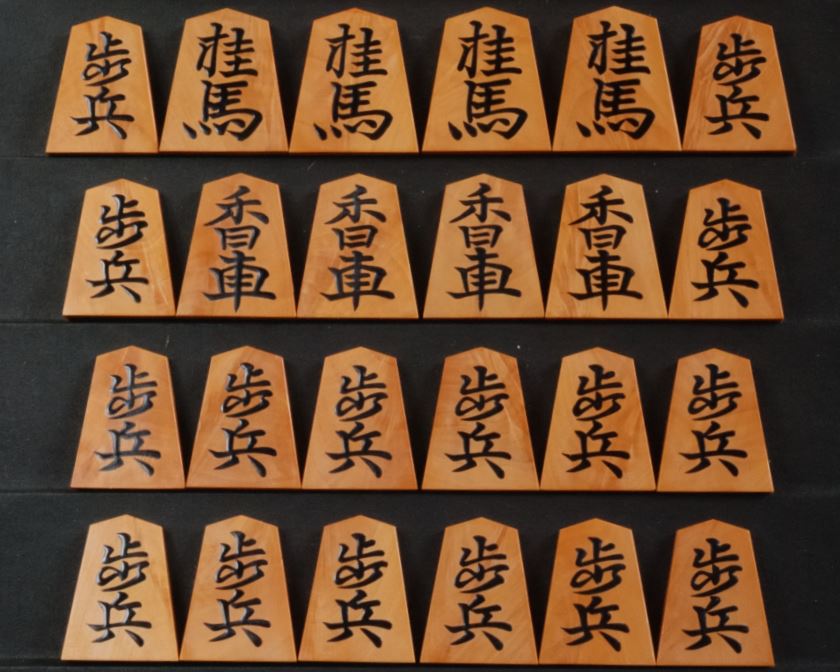 歩兵 桂馬 桂馬 桂馬 桂馬 歩兵
歩兵 香車 香車 香車 香車 歩兵
歩兵 歩兵 歩兵 歩兵 歩兵 歩兵
歩兵 歩兵 歩兵 歩兵 歩兵 歩兵